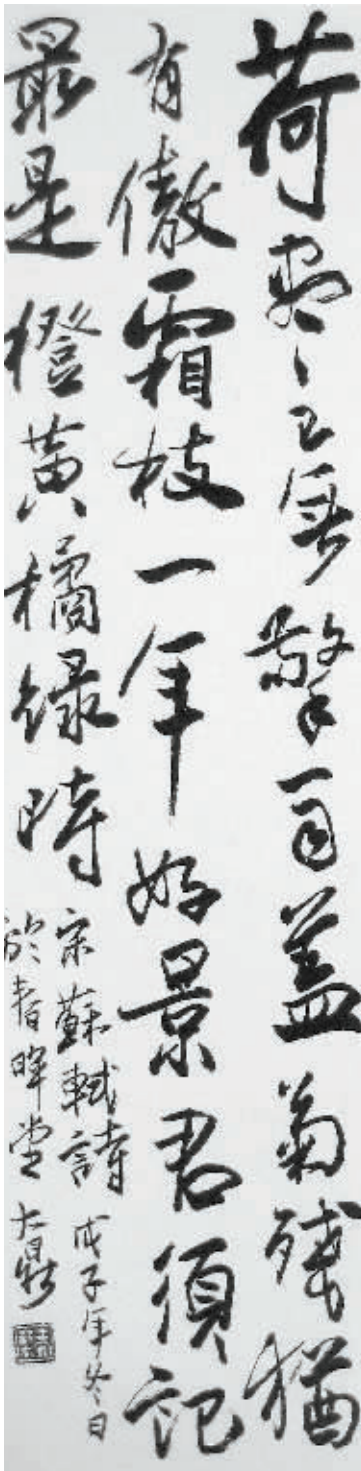 荷盡已無擎雨盖菊残猶
有傲霜枝一年好景君須記
最是橙黄橘緑時
宋蘇軾詩 戊子年冬日
於春暉堂